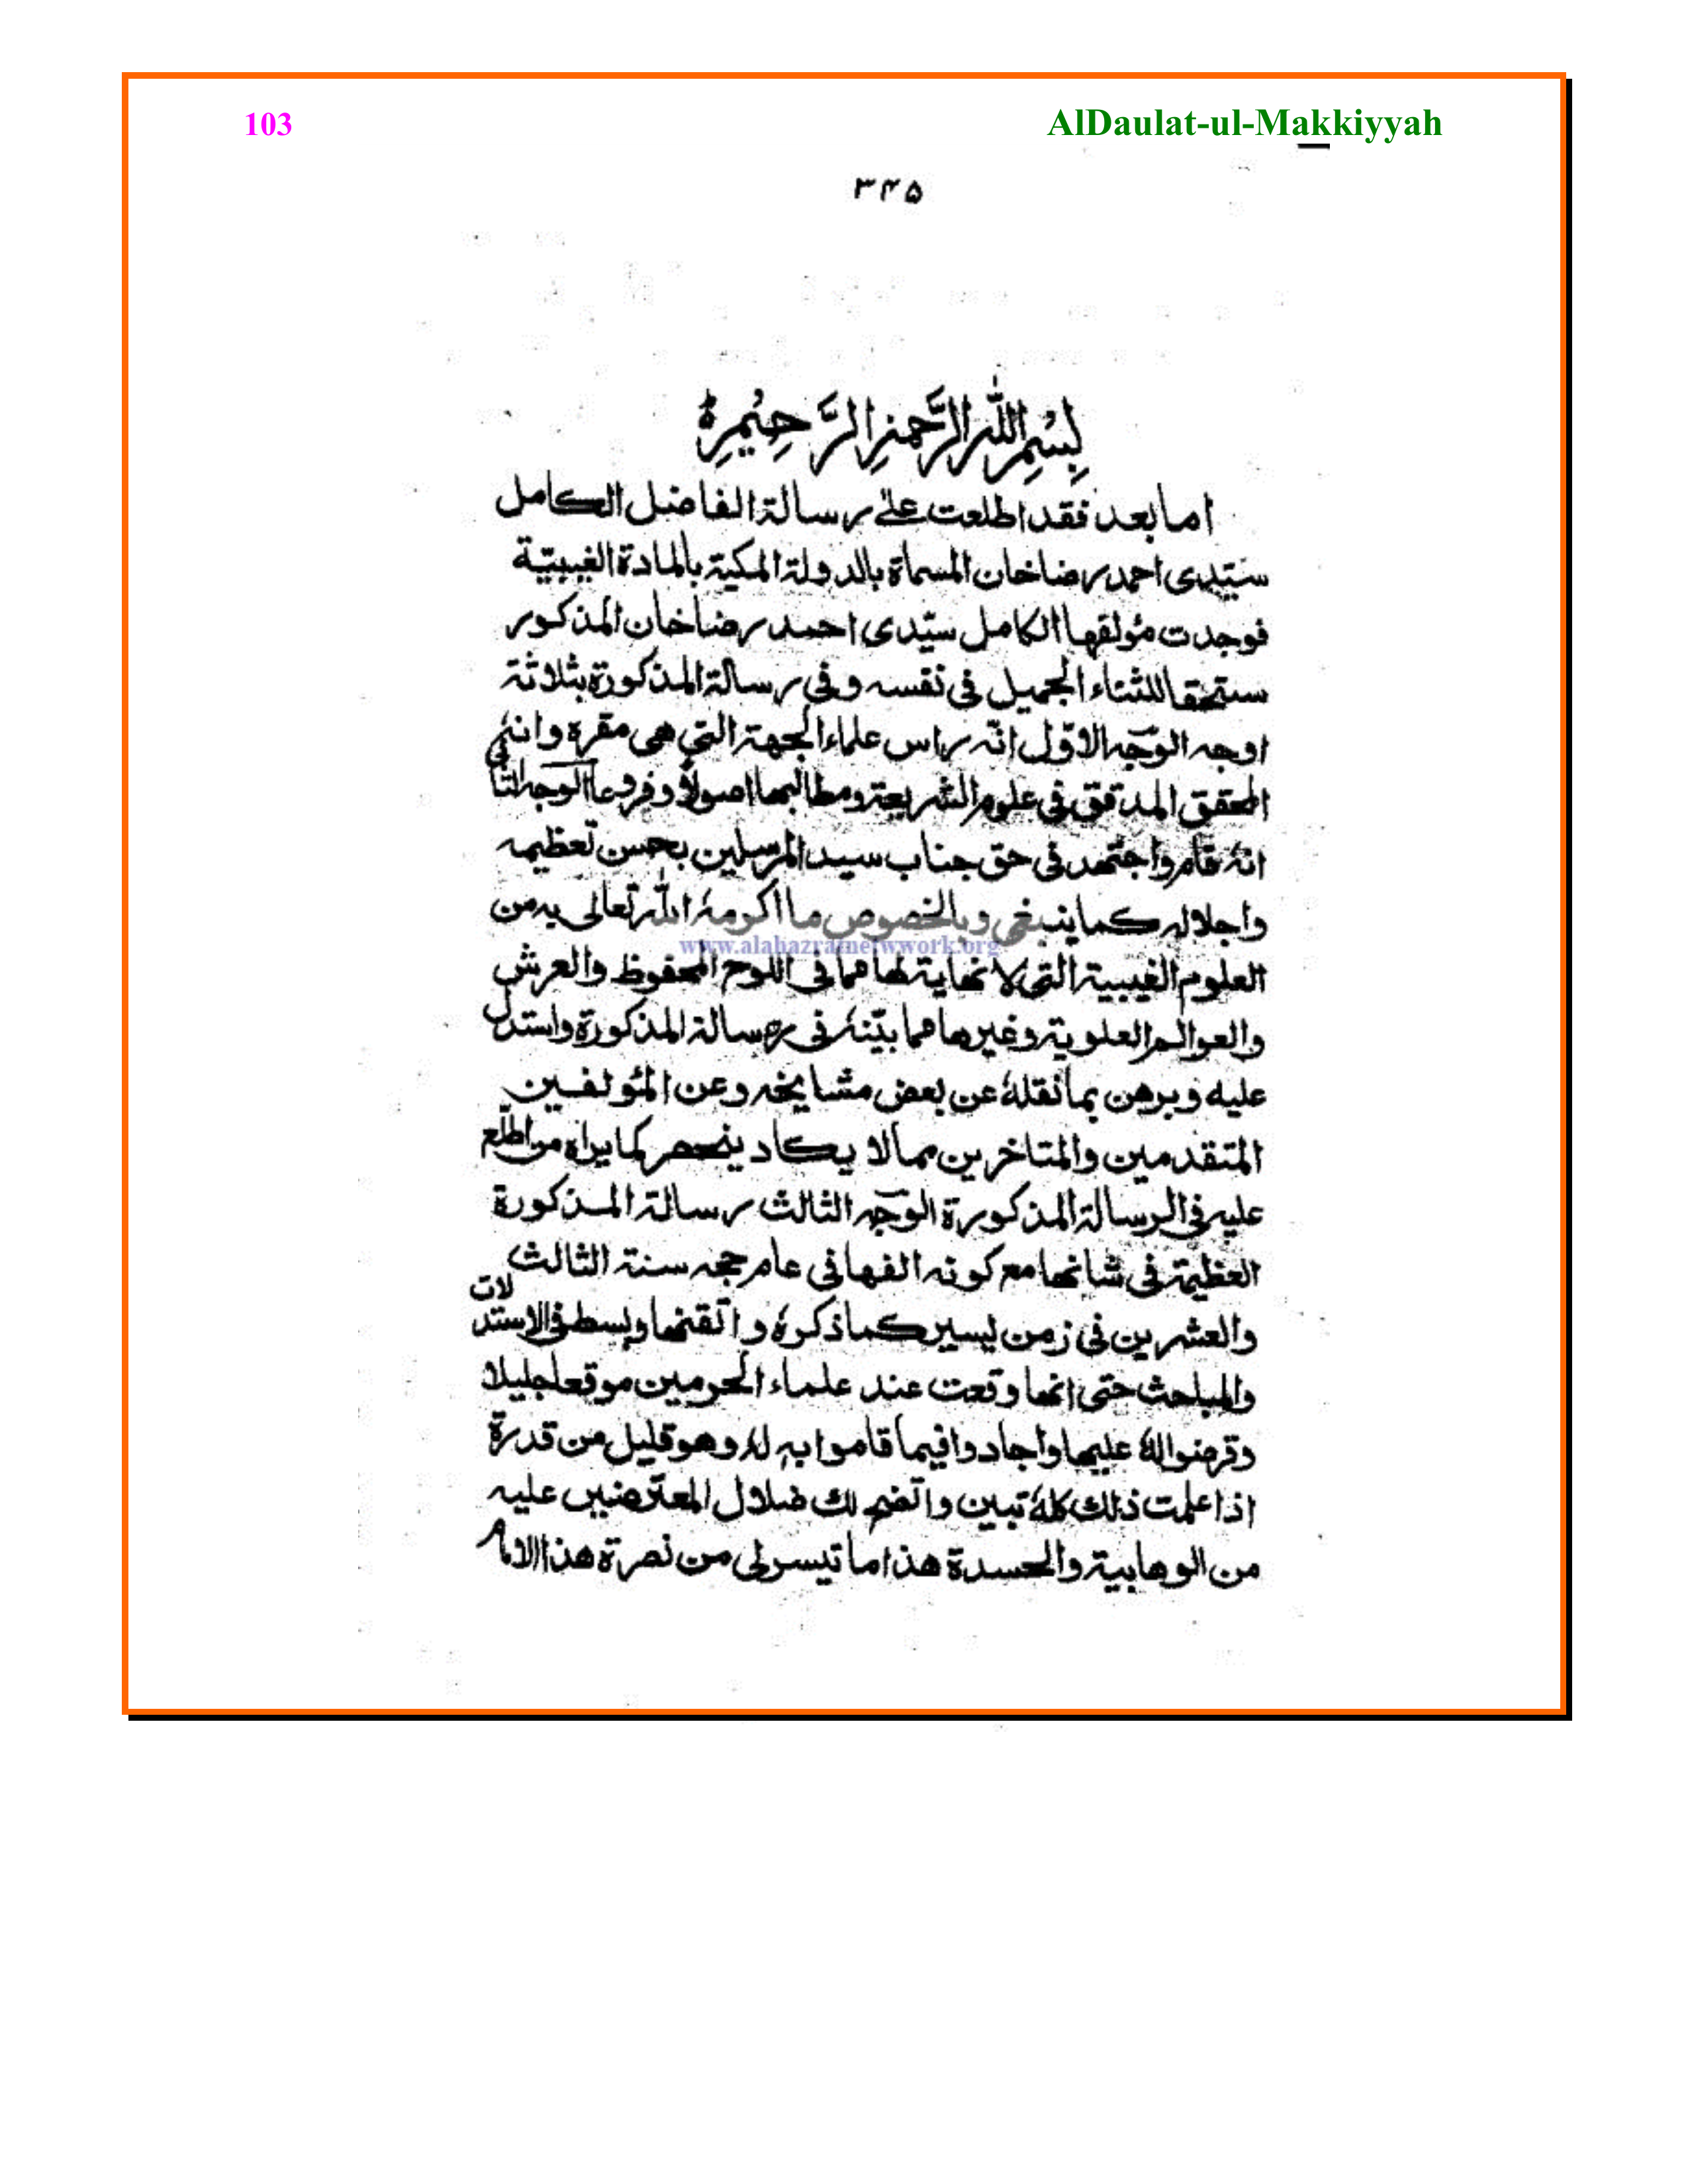 103 AlDaulat-ul-Makkiyyah
۳۴۵
بِسْمِ اللّٰهِ الرَّحْمٰنِ الرَّحِيْمِ ۝
اما بعد فقد اطلعت على رسالة الفاضل الكامل
سيّدى احمد رضا خان المسماة بالدولة المكية بالمادة الغيبيّة
فوجدت مؤلفها الكامل سيّدى احمد رضا خان المذكور
ستحقا للثناء الجميل فى نفسه وفى رسالة المذكورة بثلاثة
اوجه الوجه الاوّل انّه راس علماء الجهة التى هى مقره وانهٗ
المحقق المدقق فى علوم الشريعة ومطالبها اصولًا وفروعا الوجه الثانى
انهٗ قام واجتهد فى حق جناب سيد المرسلين بحسن تعظيمه
واجلاله كما ينبغى وبالخصوص ما اكرمهٗ الله تعالى به من
www.alahazratnetwwork.org
العلوم الغيبية التى لا نهاية لها مما فى اللوح المحفوظ والعرش
والعوالم العلوية وغيرها مما بيّنهٗ فى رسالة المذكورة واستدل
عليه وبرهن بما نقلهٗ عن بعض مشايخه وعن المئولفين
المتقدمين والمتاخرين مما لا يكاد ينحصر كما يراه من اطلع
عليه فى الرسالة المذكورة الوجه الثالث رسالة المذكورة
العظيمة فى شانها مع كونه الفها فى عام حجه سنة الثالث
والعشرين فى زمن يسير كما ذكرهٗ واتقنها وبسط فى الاستدلات
والمباحث حتى انها وقعت عند علماء الحرمين موقعا جليلا
وقرضوا لهٗ عليها واجادوا فيما قاموا به لهٗ وهو قليل من قدرة
اذا علمت ذلك كلهٗ تبين واتضح لك ضلال المعترضين عليه
من الوهابية والحسدة هذا ما تيسر لى من نصرة هذا الامام